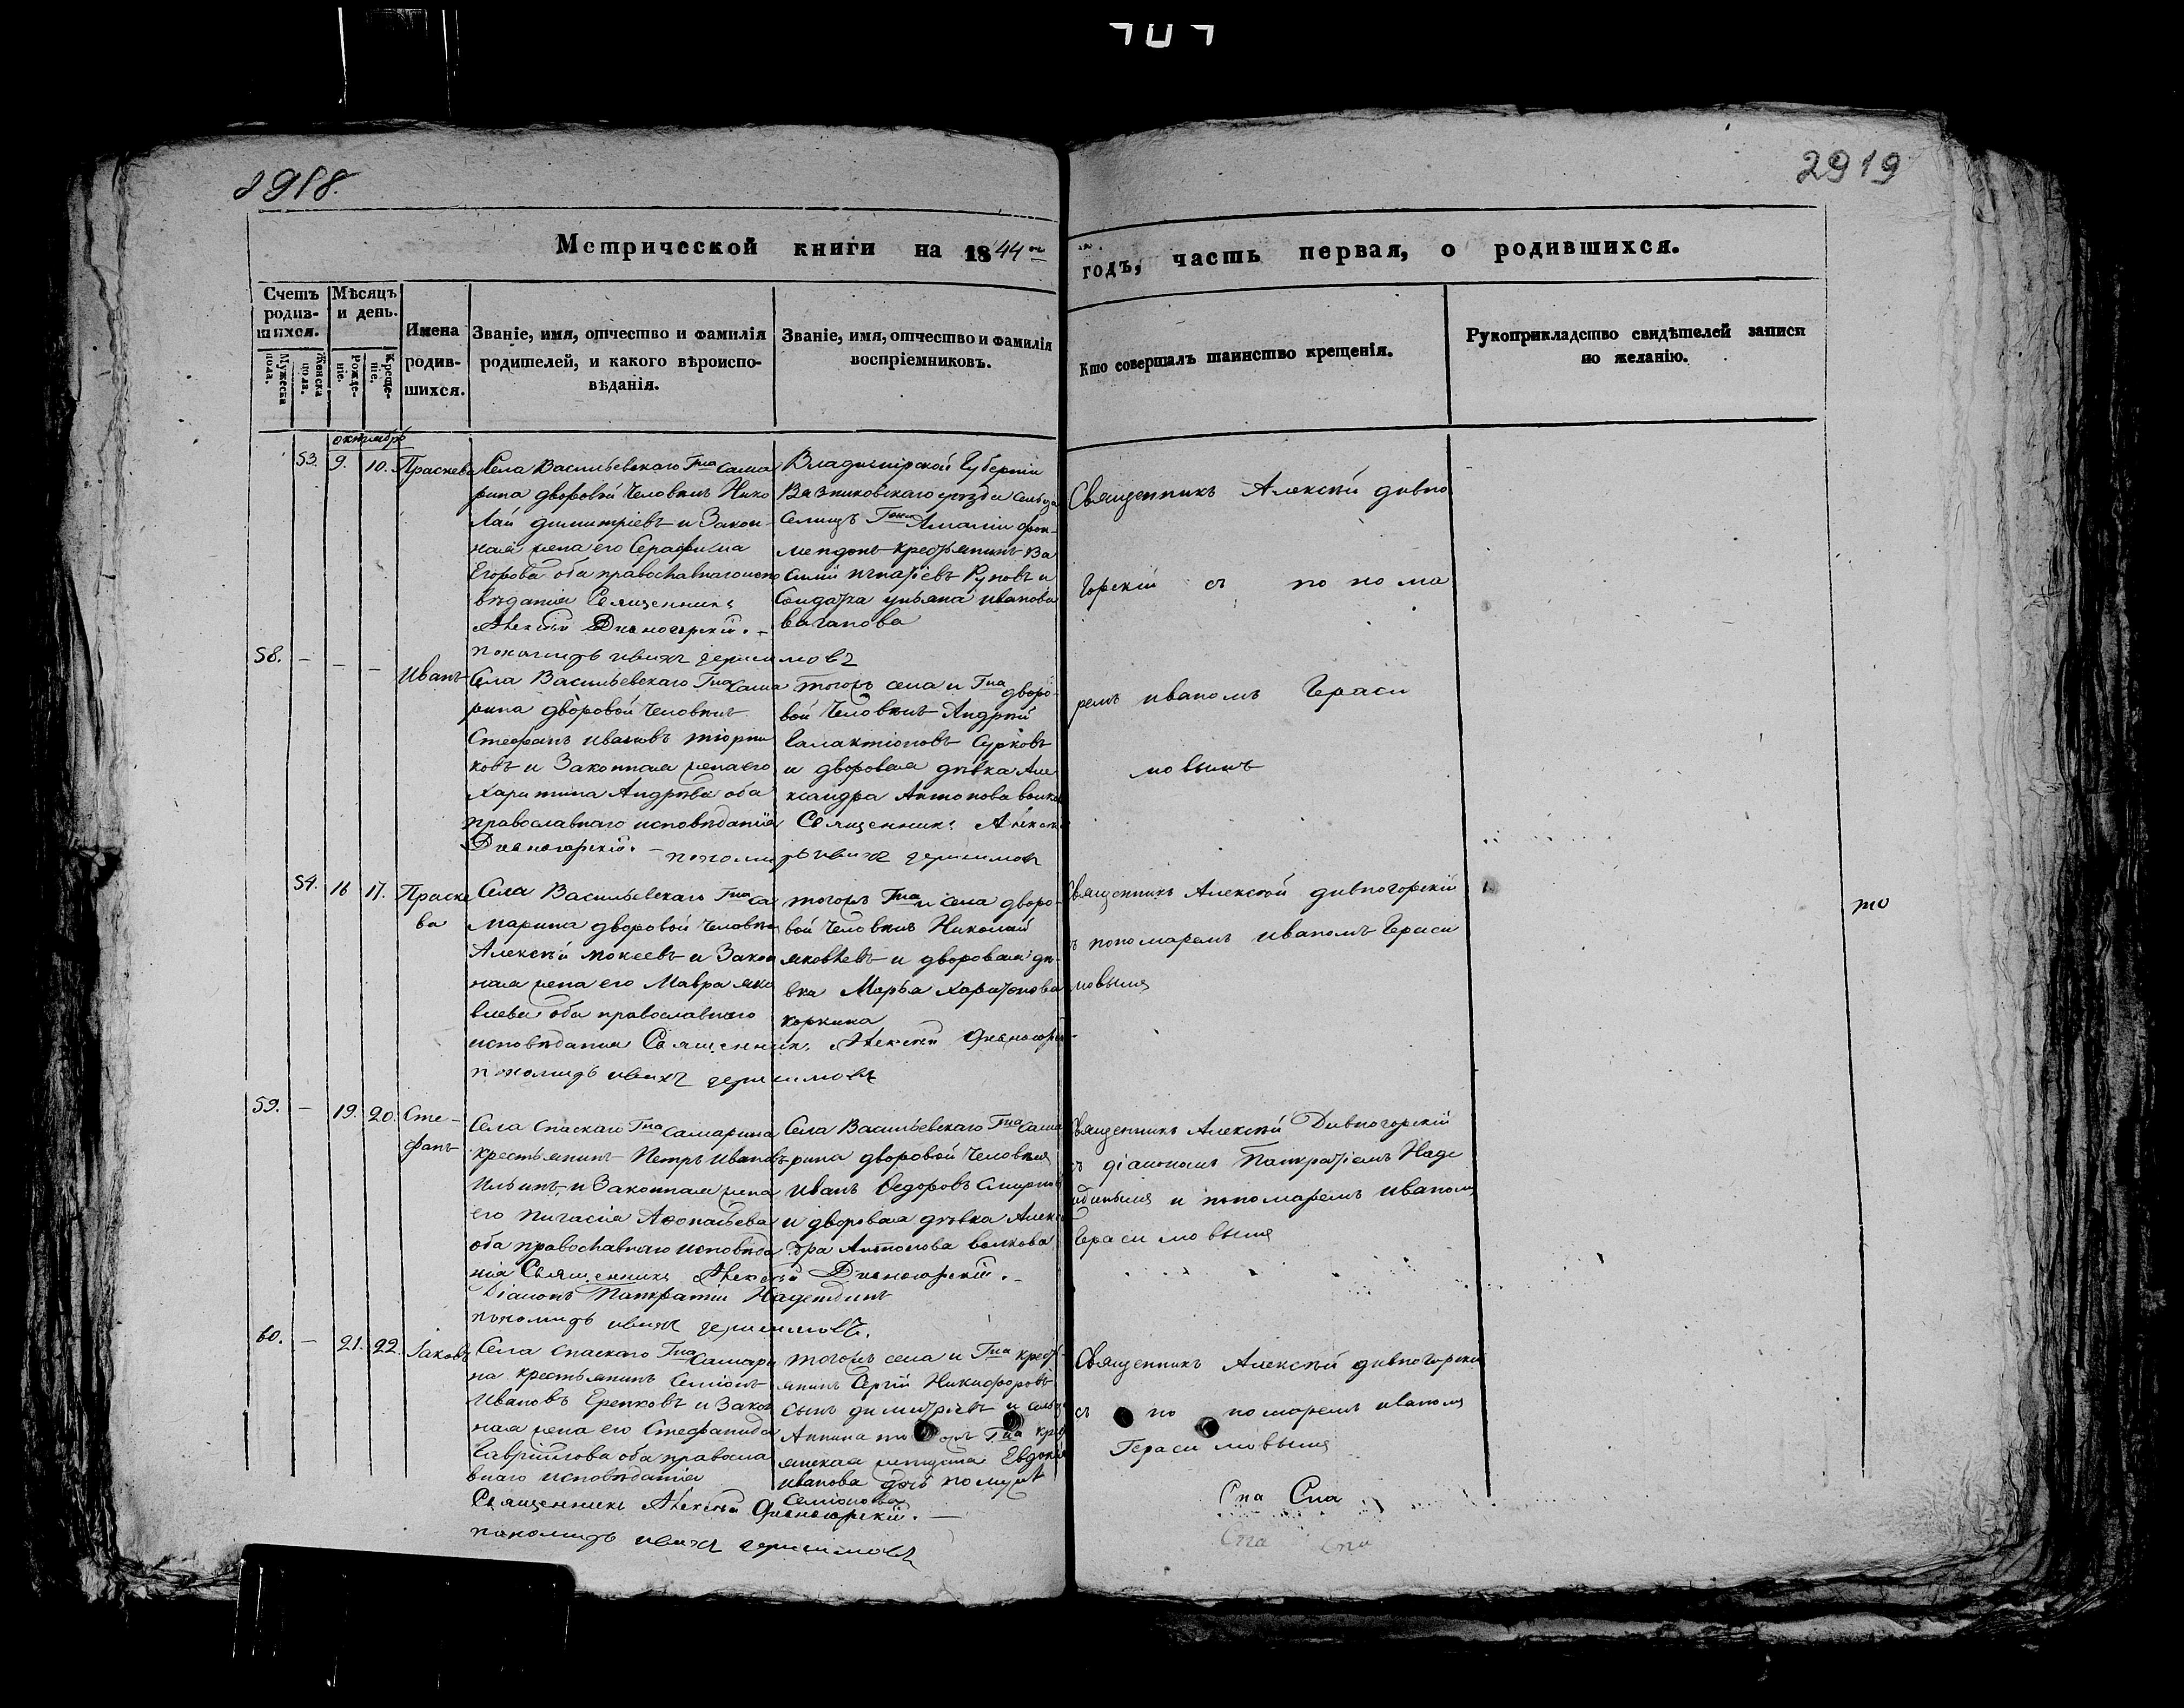 2918.
2919
Метрической книги на 1844 годъ, часть первая, о родившихся.
Счетъ родив-шихся.
Мужеска пола.
Женска пола.
Мѣсяцъ и день.
Рожде-ніе.
Креще-ніе.
Имена родив-шихся.
Званіе, имя, отчество и фамилія
родителей, и какого вѣроиспо-
вѣданія.
Званіе, имя, отчество и фамилія
воспріемниковъ.
Кто совершалъ таинство крещенія.
Рукоприкладство свидѣтелей записи
по желанію.
октябрь
53. 9. 10. Праскева
Села Васильевскаго Гна Сама
рина дворовой человѣкъ Нико
лай димитріевъ и Закон
ная жена его Серафима
Егорова оба православнаго испо
вѣданія Священникъ
Алексѣй Дивногорскій.
пономарь иванъ герасимовъ
Владимирской Губерніи
Вязниковскаго уѣзда сельца
Селищъ
крестьянинъ Ва
силій игнатіевъ и
Солдатка ульяна иванова
ваганова
Священникъ Алексѣй дивно
горскій съ понома
ремъ иваномъ Гераси
мовымъ
58. — — — Иванъ
Села Васильевскаго Гна Сама
рина дворовой человѣкъ
Стефанъ ивановъ тюрни
ковъ и Законная жена его
Харитина Андрѣева оба
православнаго исповѣданія Священникъ Алексѣй
Дивногорскій. — пономарь иванъ герасимовъ
тогожъ села и Гна дворо-
вой человѣкъ Андрѣй
Галактіоновъ Сурковъ
и дворовая дѣвка Але
ксандра Антонова волкова
54. 16 17. Праске
ва
Села Васильевскаго Гна Са
марина дворовой человѣкъ
Алексѣй мокеевъ и Закон
ная жена его Мавра яко
влева оба православнаго
исповѣданія Священникъ Алексѣй Дивногорскій
пономарь иванъ герасимовъ
тогожъ Гна и села дворо-
вой человѣкъ Николай
яковлевъ и дворовая дѣ-
вка Марья Харитонова
коркина
Священникъ Алексѣй дивногорскій
съ пономаремъ иваномъ Гераси
мовымъ
то
59. — 19. 20. Сте-
фанъ
Села Спаскаго Гна Самарина
крестьянинъ Петръ ивановъ
ильинъ и Законная жена
его пигасія Афонасьева
оба православнаго исповѣда
нія Священникъ Алексѣй Дивногорскій.
Діаконъ Панкратій Надеждинъ
пономарь иванъ герасимовъ.
Села Васильевскаго Гна Сама
рина дворовой человѣкъ
иванъ Ѳедоровъ Смирновъ
и дворовая дѣвка Алексан
дра Антонова волкова
Священникъ Алексѣй Дивногорскій
съ діакономъ Панкратіемъ Наде
ждинымъ и пономаремъ иваномъ
Герасимовымъ
60. — 21. 22. Іаковъ
Села Спаскаго Гна Самари
на крестьянинъ Семіонъ
ивановъ Ерепковъ и Закон
ная жена его Стефанида
Гавріилова оба правосла
внаго исповѣданія
Священникъ Алексѣй Дивногорскій. —
пономарь иванъ герасимовъ
тогожъ села и Гна кресть
янинъ Сергій Никифоровъ
сынъ димитріевъ и сельца
Аннина тогожъ Гна кресть
янская женщина Евдокія
иванова дочь по мужѣ
Семіонова
Священникъ Алексѣй дивногорскій
съ пономаремъ иваномъ
Герасимовымъ
Спа Спа
Спа Спа